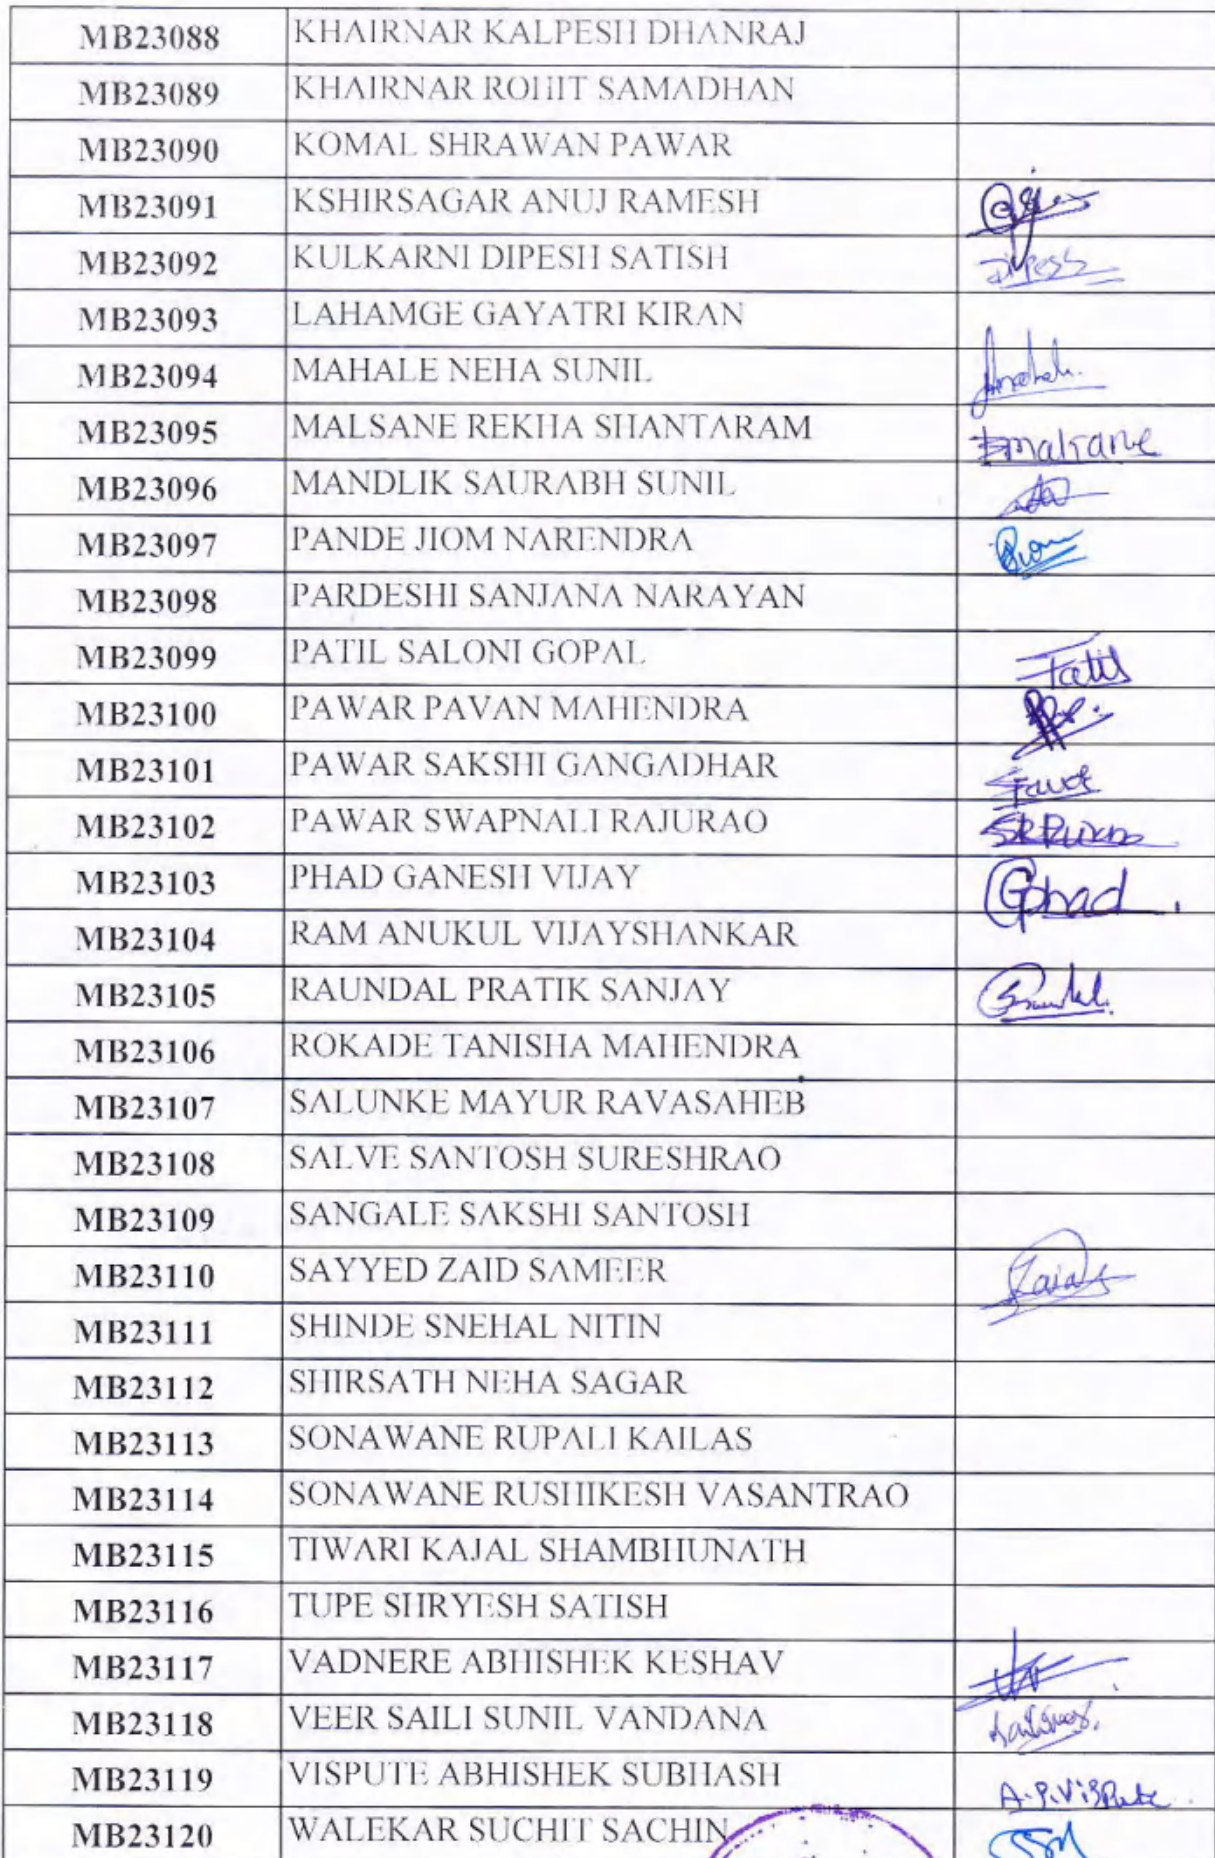 MB23088 KHAIRNAR KALPESH DHANRAJ
MB23089 KHAIRNAR ROHIT SAMADHAN
MB23090 KOMAL SHRAWAN PAWAR
MB23091 KSHIRSAGAR ANUJ RAMESH
MB23092 KULKARNI DIPESH SATISH Dipesh
MB23093 LAHAMGE GAYATRI KIRAN
MB23094 MAHALE NEHA SUNIL
MB23095 MALSANE REKHA SHANTARAM
MB23096 MANDLIK SAURABH SUNIL
MB23097 PANDE JIOM NARENDRA
MB23098 PARDESHI SANJANA NARAYAN
MB23099 PATIL SALONI GOPAL
MB23100 PAWAR PAVAN MAHENDRA
MB23101 PAWAR SAKSHI GANGADHAR
MB23102 PAWAR SWAPNALI RAJURAO
MB23103 PHAD GANESH VIJAY Gphad
MB23104 RAM ANUKUL VIJAYSHANKAR
MB23105 RAUNDAL PRATIK SANJAY
MB23106 ROKADE TANISHA MAHENDRA
MB23107 SALUNKE MAYUR RAVASAHEB
MB23108 SALVE SANTOSH SURESHRAO
MB23109 SANGALE SAKSHI SANTOSH
MB23110 SAYYED ZAID SAMEER Zaid
MB23111 SHINDE SNEHAL NITIN
MB23112 SHIRSATH NEHA SAGAR
MB23113 SONAWANE RUPALI KAILAS
MB23114 SONAWANE RUSHIKESH VASANTRAO
MB23115 TIWARI KAJAL SHAMBHUNATH
MB23116 TUPE SHRYESH SATISH
MB23117 VADNERE ABHISHEK KESHAV
MB23118 VEER SAILI SUNIL VANDANA
MB23119 VISPUTE ABHISHEK SUBHASH A.S.Vispute
MB23120 WALEKAR SUCHIT SACHIN